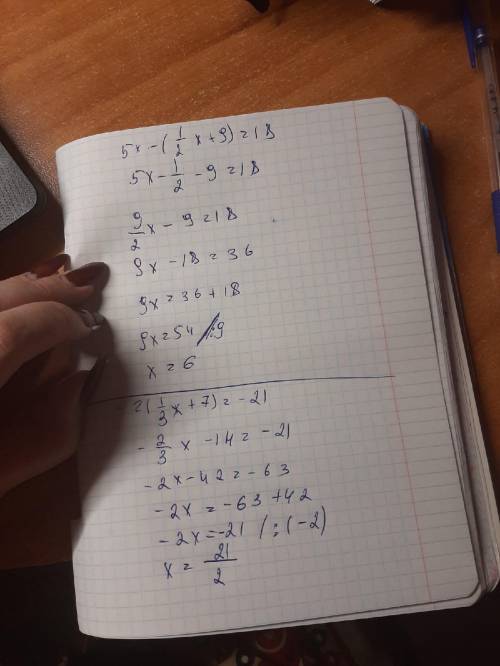 5x - (1/2 x + 9) = 18
5x - 1/2 - 9 = 18
9/2 x - 9 = 18
9x - 18 = 36
9x = 36 + 18
9x = 54 /:9
x = 6
-2(1/3 x + 7) = -21
- 2/3 x - 14 = -21
-2x - 42 = -63
-2x = -63 + 42
-2x = -21 /:(-2)
x = 21/2